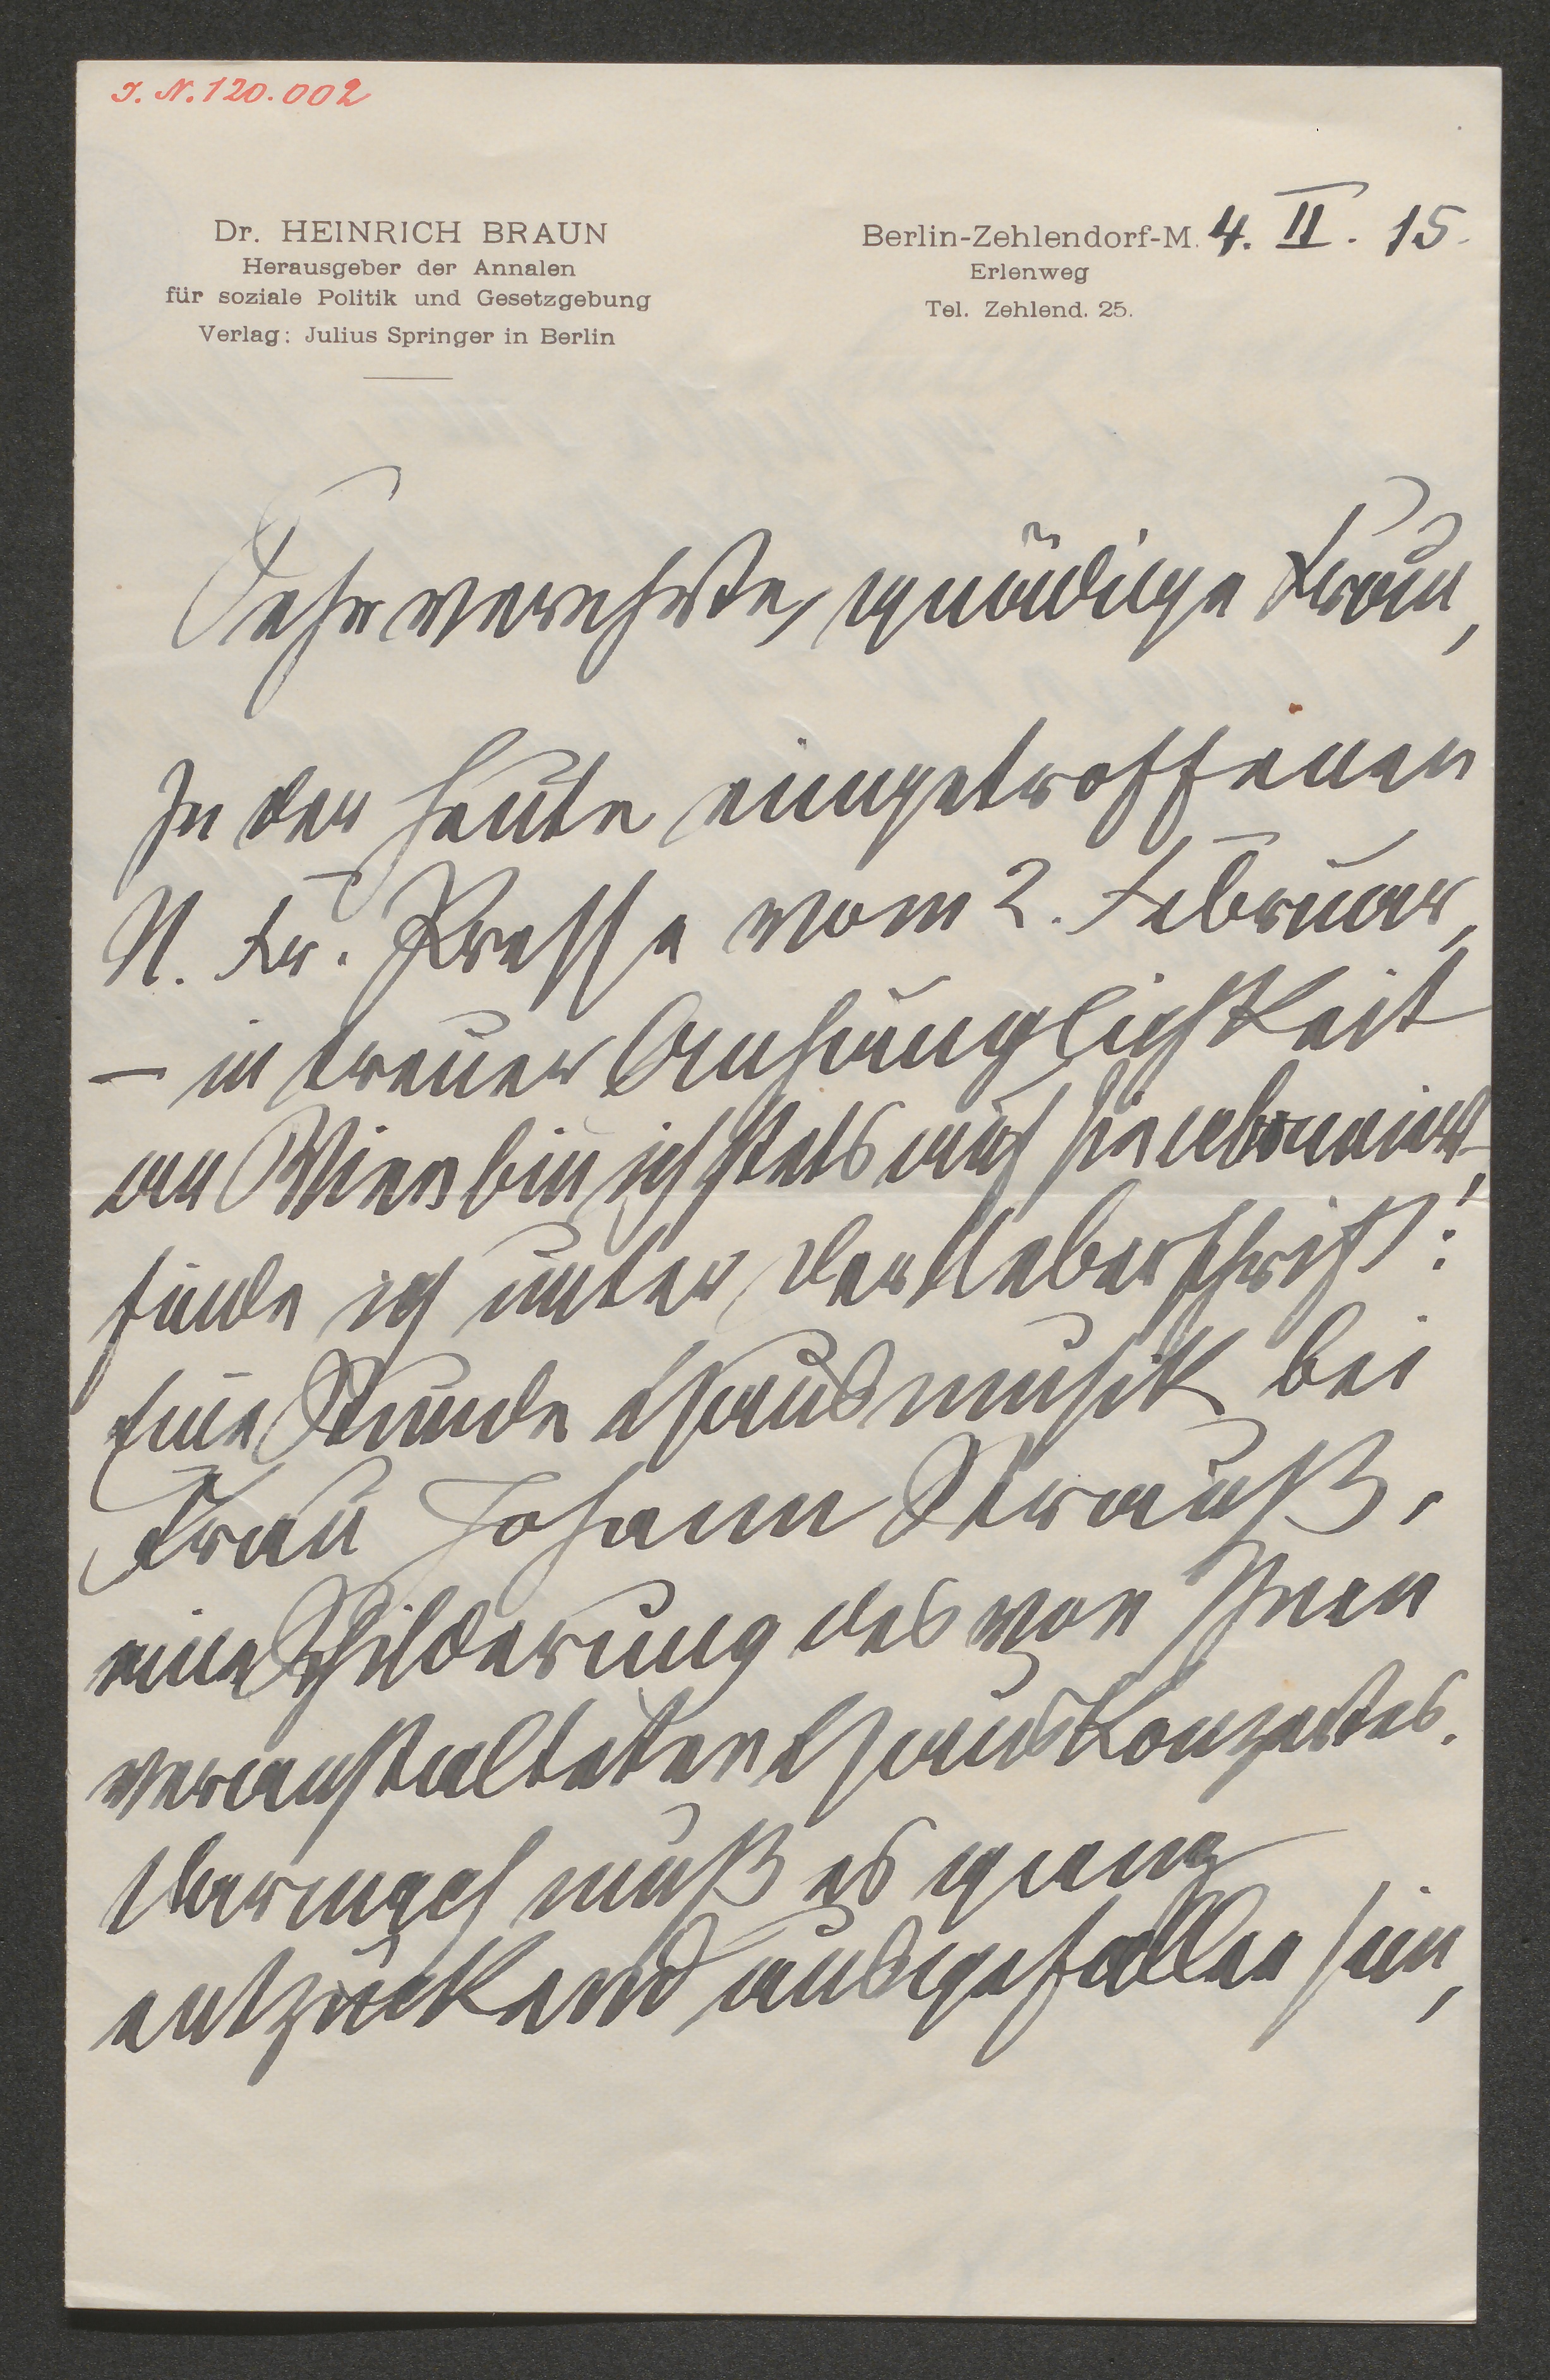 I. N. 120.002
Dr. HEINRICH BRAUN
Herausgeber der Annalen
für soziale Politik und Gesetzgebung
Verlag: Julius Springer in Berlin
Berlin-Zehlendorf-M. 4. II. 15.
Erlenweg
Tel. Zehlend. 25.
Sehr verehrte, gnädige Frau,
In der heute eingetroffenen
N. Fr. Presse vom 2. Februar,
– in treuer Anhänglichkeit
an Wien bin ich stets auf sie abonniert –,
finde ich unter der Ueberschrift:
Eine Stunde Hausmusik bei
Frau Johann Strauß,
eine Schilderung des von Ihnen
veranstalteten Hauskonzertes.
Darnach muß es ganz
entzückend ausgefallen sein,